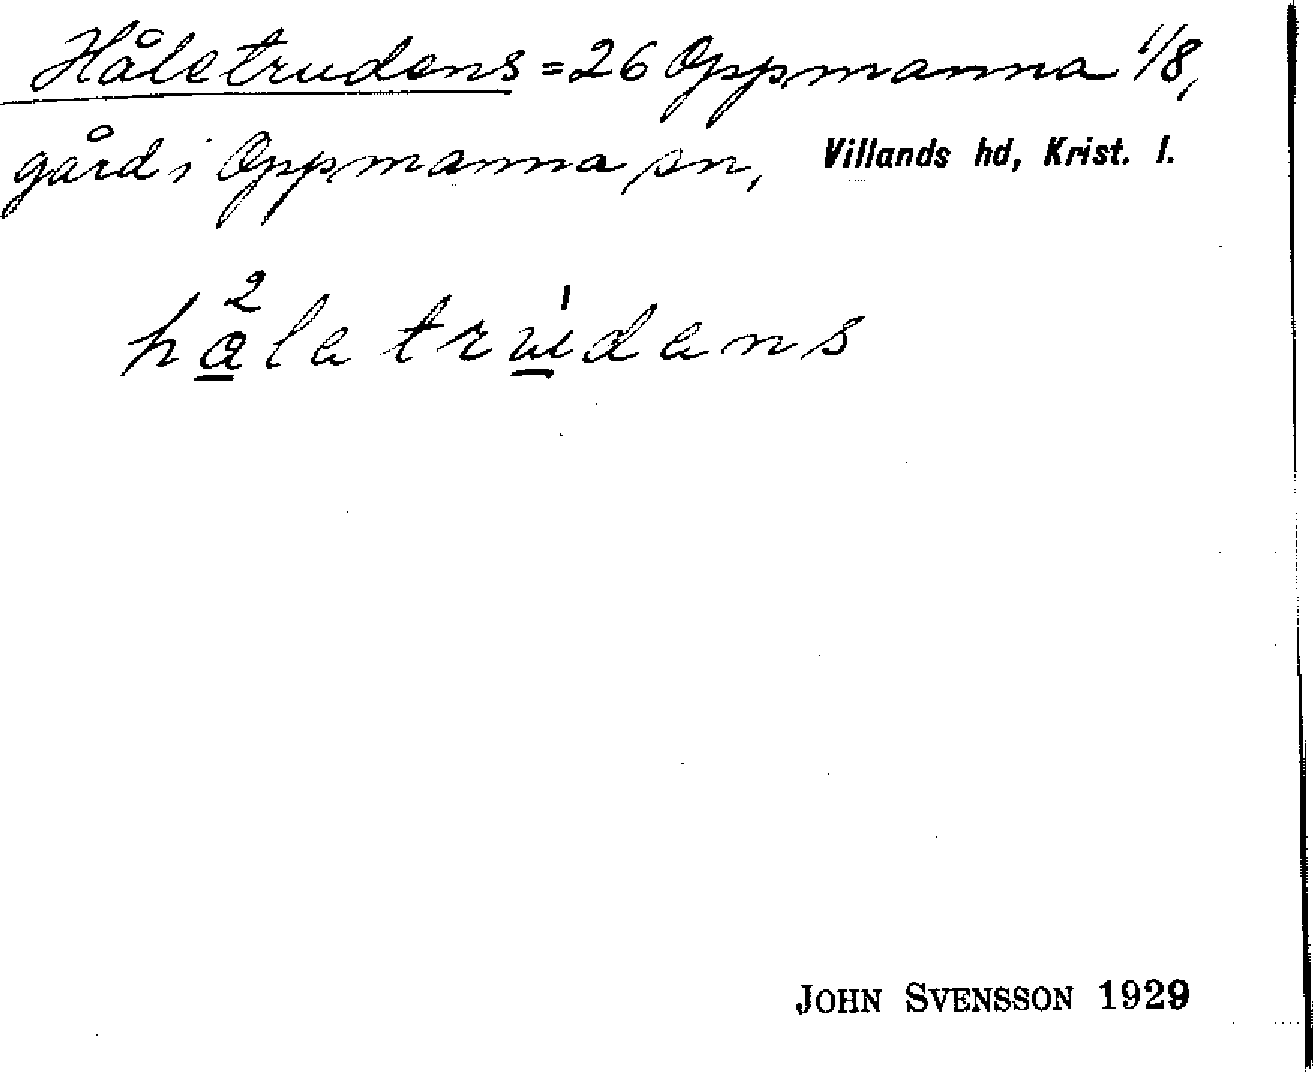 Håletrudens = 26 Oppmanna 1/8,
gård i Oppmanna sn, Villands hd, Krist. l.
2
håla trudens
JOHN SVENSSON 1929